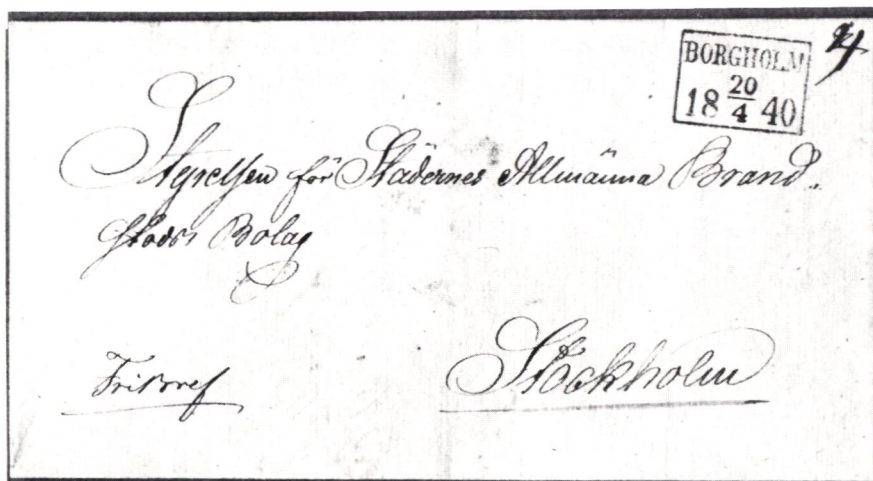 BORGHOLM
18 20/4 40
4
Styrelsen för Städernes Allmänna Brand-
stods Bolag
Stockholm
Fribref